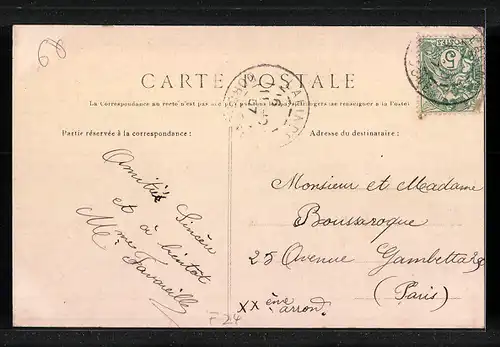 CARTE POSTALE
La Correspondance au recto n'est pas
se renseigner à la Poste
Partie réservée à la correspondance :
Adresse du destinataire :
Amitié Sincère
et à bientôt
Monsieur et Madame
Boussaroque
25 Avenue Gambetta
(Paris)
XX ème arrond.
F24
5